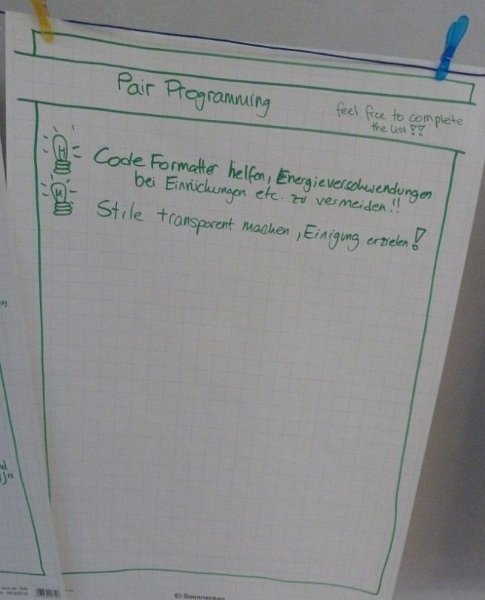 Pair Programming
feel free to complete
the list !!
Code Formatter helfen, Energieverschwendungen
bei Einrückungen etc. zu vermeiden!!
Stile transparent machen, Einigung erzielen!
Soennecken